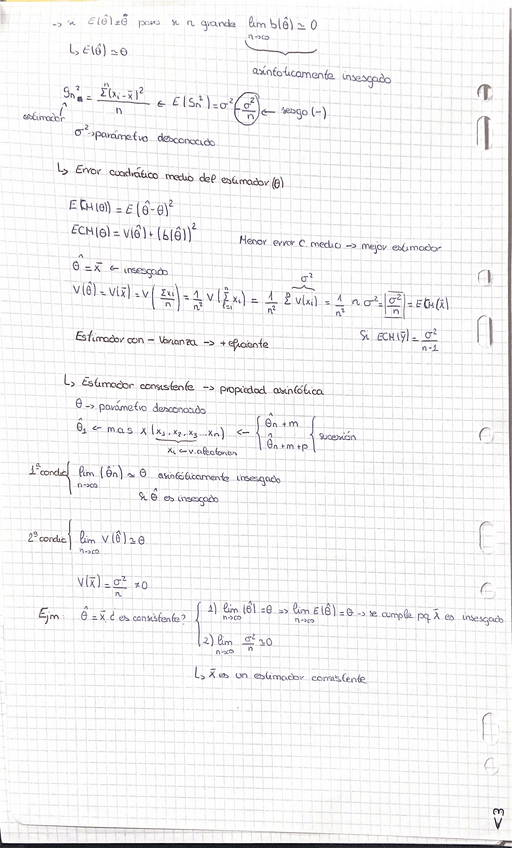 → si E(θ̂)≠θ̂ para si n grande lim b(θ̂) ≃ 0
n→∞
↳ E(θ̂) ≃ θ
asintóticamente insesgado
Sn² = Σ(xi - x̄)² / n ← E(Sn²) = σ² - σ²/n ← sesgo (-)
estimador
σ² → parámetro desconocido
↳ Error cuadrático medio del estimador (θ)
ECM(θ)) = E(θ̂-θ)²
ECM(θ) = V(θ̂) + (b(θ̂))²
Menor error c. medio → mejor estimador
θ̂ = x̄ ← insesgado
σ²
V(θ̂) = V(x̄) = V(Σxi / n) = 1/n² V(Σ xi) = 1/n² Σ V(xi) = 1/n² n σ² = σ²/n = ECM(x̄)
Estimador con - Varianza → + eficiente
Si ECM(ȳ) = σ²/n-1
↳ Estimador consistente → propiedad asintótica
θ → parámetro desconocido
θ̂1 ← mas x (x1, x2, x3 ... xn) ← { θ̂n+m
θ̂n+m+p } sucesión
xi ← v. aleatorias
1ª condic { lim (θ̂n) ≃ θ asintóticamente insesgado
n→∞
si θ̂ es insesgado
2ª condic { lim V(θ̂) ≃ 0
n→∞
V(x̄) = σ²/n ≠ 0
Ejm: θ̂ = x̄ ¿ es consistente? { 1) lim (θ̂) = θ ⇒ lim E(θ̂) = θ → se cumple pq x̄ es insesgado
n→∞ n→∞
2) lim σ²/n ≃ 0
n→∞
↳ x̄ es un estimador consistente
<3